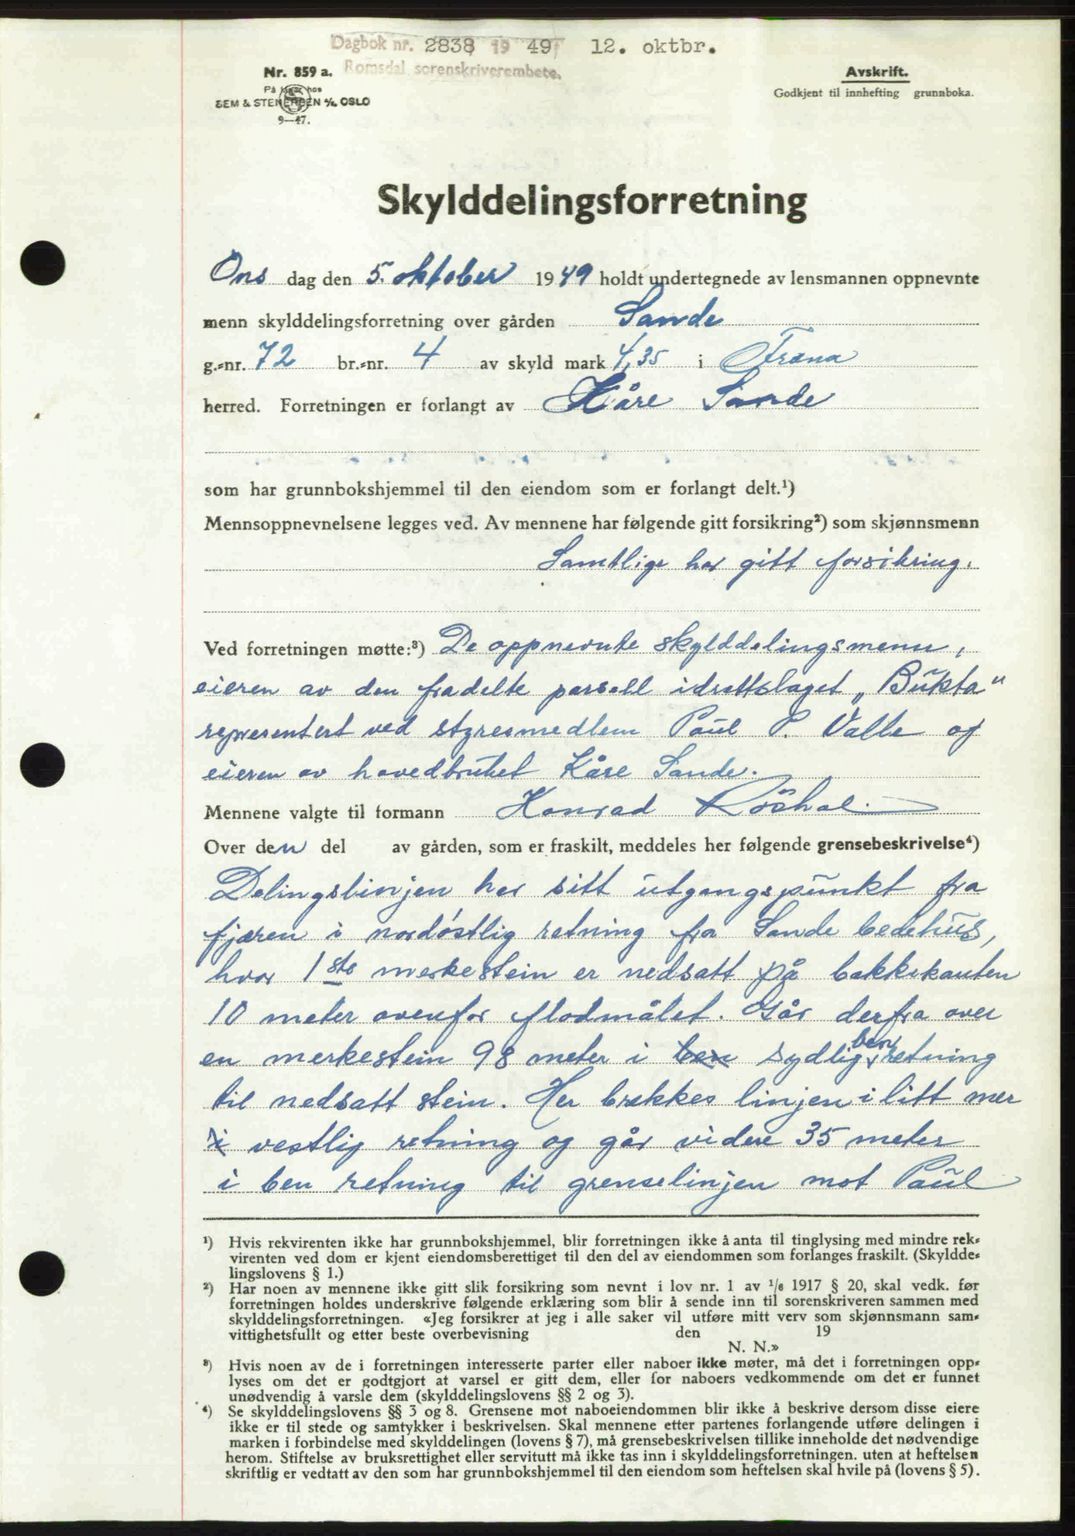 Dagbok nr. 2838 19 49 12. oktbr.
Romsdal sorenskriverembete.
Nr. 859 a.
På lager hos
SEM & STENERSEN A/S, OSLO
9—47.
Avskrift.
Godkjent til innhefting grunnboka.
Skylddelingsforretning
Ons dag den 5. oktober 1949 holdt undertegnede av lensmannen oppnevnte
menn skylddelingsforretning over gården Sande
g.-nr. 72 br.-nr. 4 av skyld mark 4,35 i Fræna
herred. Forretningen er forlangt av Kåre Sande
som har grunnbokshjemmel til den eiendom som er forlangt delt.¹)
Mennsoppnevnelsene legges ved. Av mennene har følgende gitt forsikring²) som skjønnsmenn
Samtlige har gitt forsikring.
Ved forretningen møtte:³) De oppnevnte skylddelingsmenn,
eieren av den fradelte parsell idrettslaget „Bukta"
representert ved styresmedlem Paul P. Valle og
eieren av hovedbruket Kåre Sande.
Mennene valgte til formann Konrad Röshol.
Over den del av gården, som er fraskilt, meddeles her følgende grensebeskrivelse⁴)
Delingslinjen har sitt utgangspunkt fra
fjæren i nordøstlig retning fra Sande bedehus,
hvor 1ste merkestein er nedsatt på bakkekanten
10 meter ovenfor flodmålet. Går derfra over
en merkestein 98 meter i ben sydlig ben retning
til nedsatt stein. Her brekkes linjen i litt mer
i vestlig retning og går videre 35 meter
i ben retning til grenselinjen mot Paul
¹) Hvis rekvirenten ikke har grunnbokshjemmel, blir forretningen ikke å anta til tinglysing med mindre rek-
virenten ved dom er kjent eiendomsberettiget til den del av eiendommen som forlanges fraskilt. (Skyldde-
lingslovens § 1.)
²) Har noen av mennene ikke gitt slik forsikring som nevnt i lov nr. 1 av 1/6 1917 § 20, skal vedk. før
forretningen holdes underskrive følgende erklæring som blir å sende inn til sorenskriveren sammen med
skylddelingsforretningen. «Jeg forsikrer at jeg i alle saker vil utføre mitt verv som skjønnsmann sam-
vittighetsfullt og etter beste overbevisning den 19
N. N.»
³) Hvis noen av de i forretningen interesserte parter eller naboer ikke møter, må det i forretningen opp-
lyses om det er godtgjort at varsel er gitt dem, eller for naboers vedkommende om det er funnet
unødvendig å varsle dem (skylddelingslovens §§ 2 og 3).
⁴) Se skylddelingslovens §§ 3 og 8. Grensene mot naboeiendommen blir ikke å beskrive dersom disse eiere
ikke er til stede og samtykker i beskrivelsen. Skal mennene etter partenes forlangende utføre delingen i
marken i forbindelse med skylddelingen (lovens § 7), må grensebeskrivelsen tillike inneholde det nødvendige
herom. Stiftelse av bruksrettighet eller servitutt må ikke tas inn i skylddelingsforretningen. uten at heftelsen
skriftlig er vedtatt av den som har grunnbokshjemmel til den eiendom som heftelsen skal hvile på (lovens § 5).